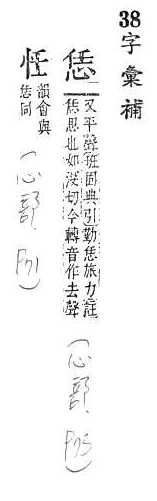 38字彙補
恁 又平聲班固典引勤恁旅力註
恁思也如深切今轉音作去聲
(心部, P75)
恇 韻會與
恁同
(心部, P71)